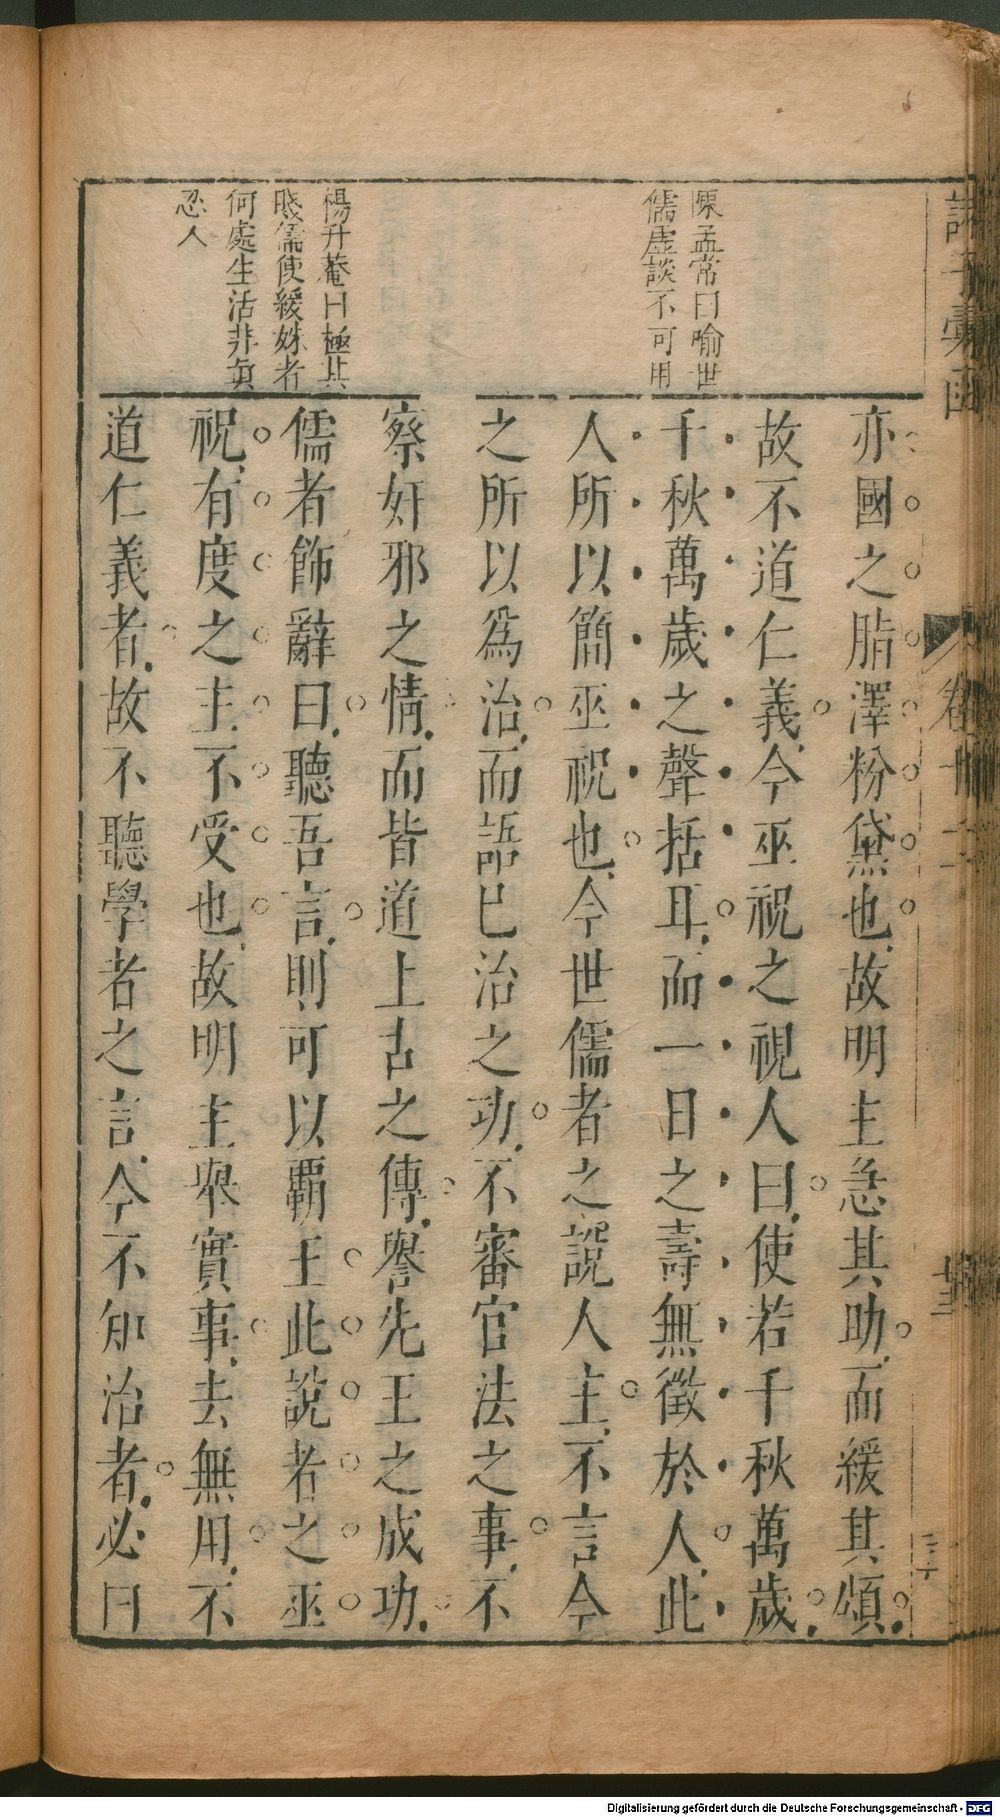 諸子彙函
卷十二
陳孟常曰喻世
儒虛談不可用
楊升菴曰極其
賤儒使緩姝者
何處生活非真
忍人
亦國之脂澤粉黛也故明主急其助而緩其頌
故不道仁義今巫祝之視人曰使若千秋萬歲
千秋萬歲之聲括耳而一日之壽無徵於人此
人所以簡巫祝也今世儒者之說人主不言今
之所以爲治而語已治之功不審官法之事不
察奸邪之情而皆道上古之傳譽先王之成功
儒者飾辭曰聽吾言則可以霸王此說者之巫
祝有度之主不受也故明主舉實事去無用不
道仁義者故不聽學者之言今不知治者必曰
Digitalisierung gefördert durch die Deutsche Forschungsgemeinschaft - DFG